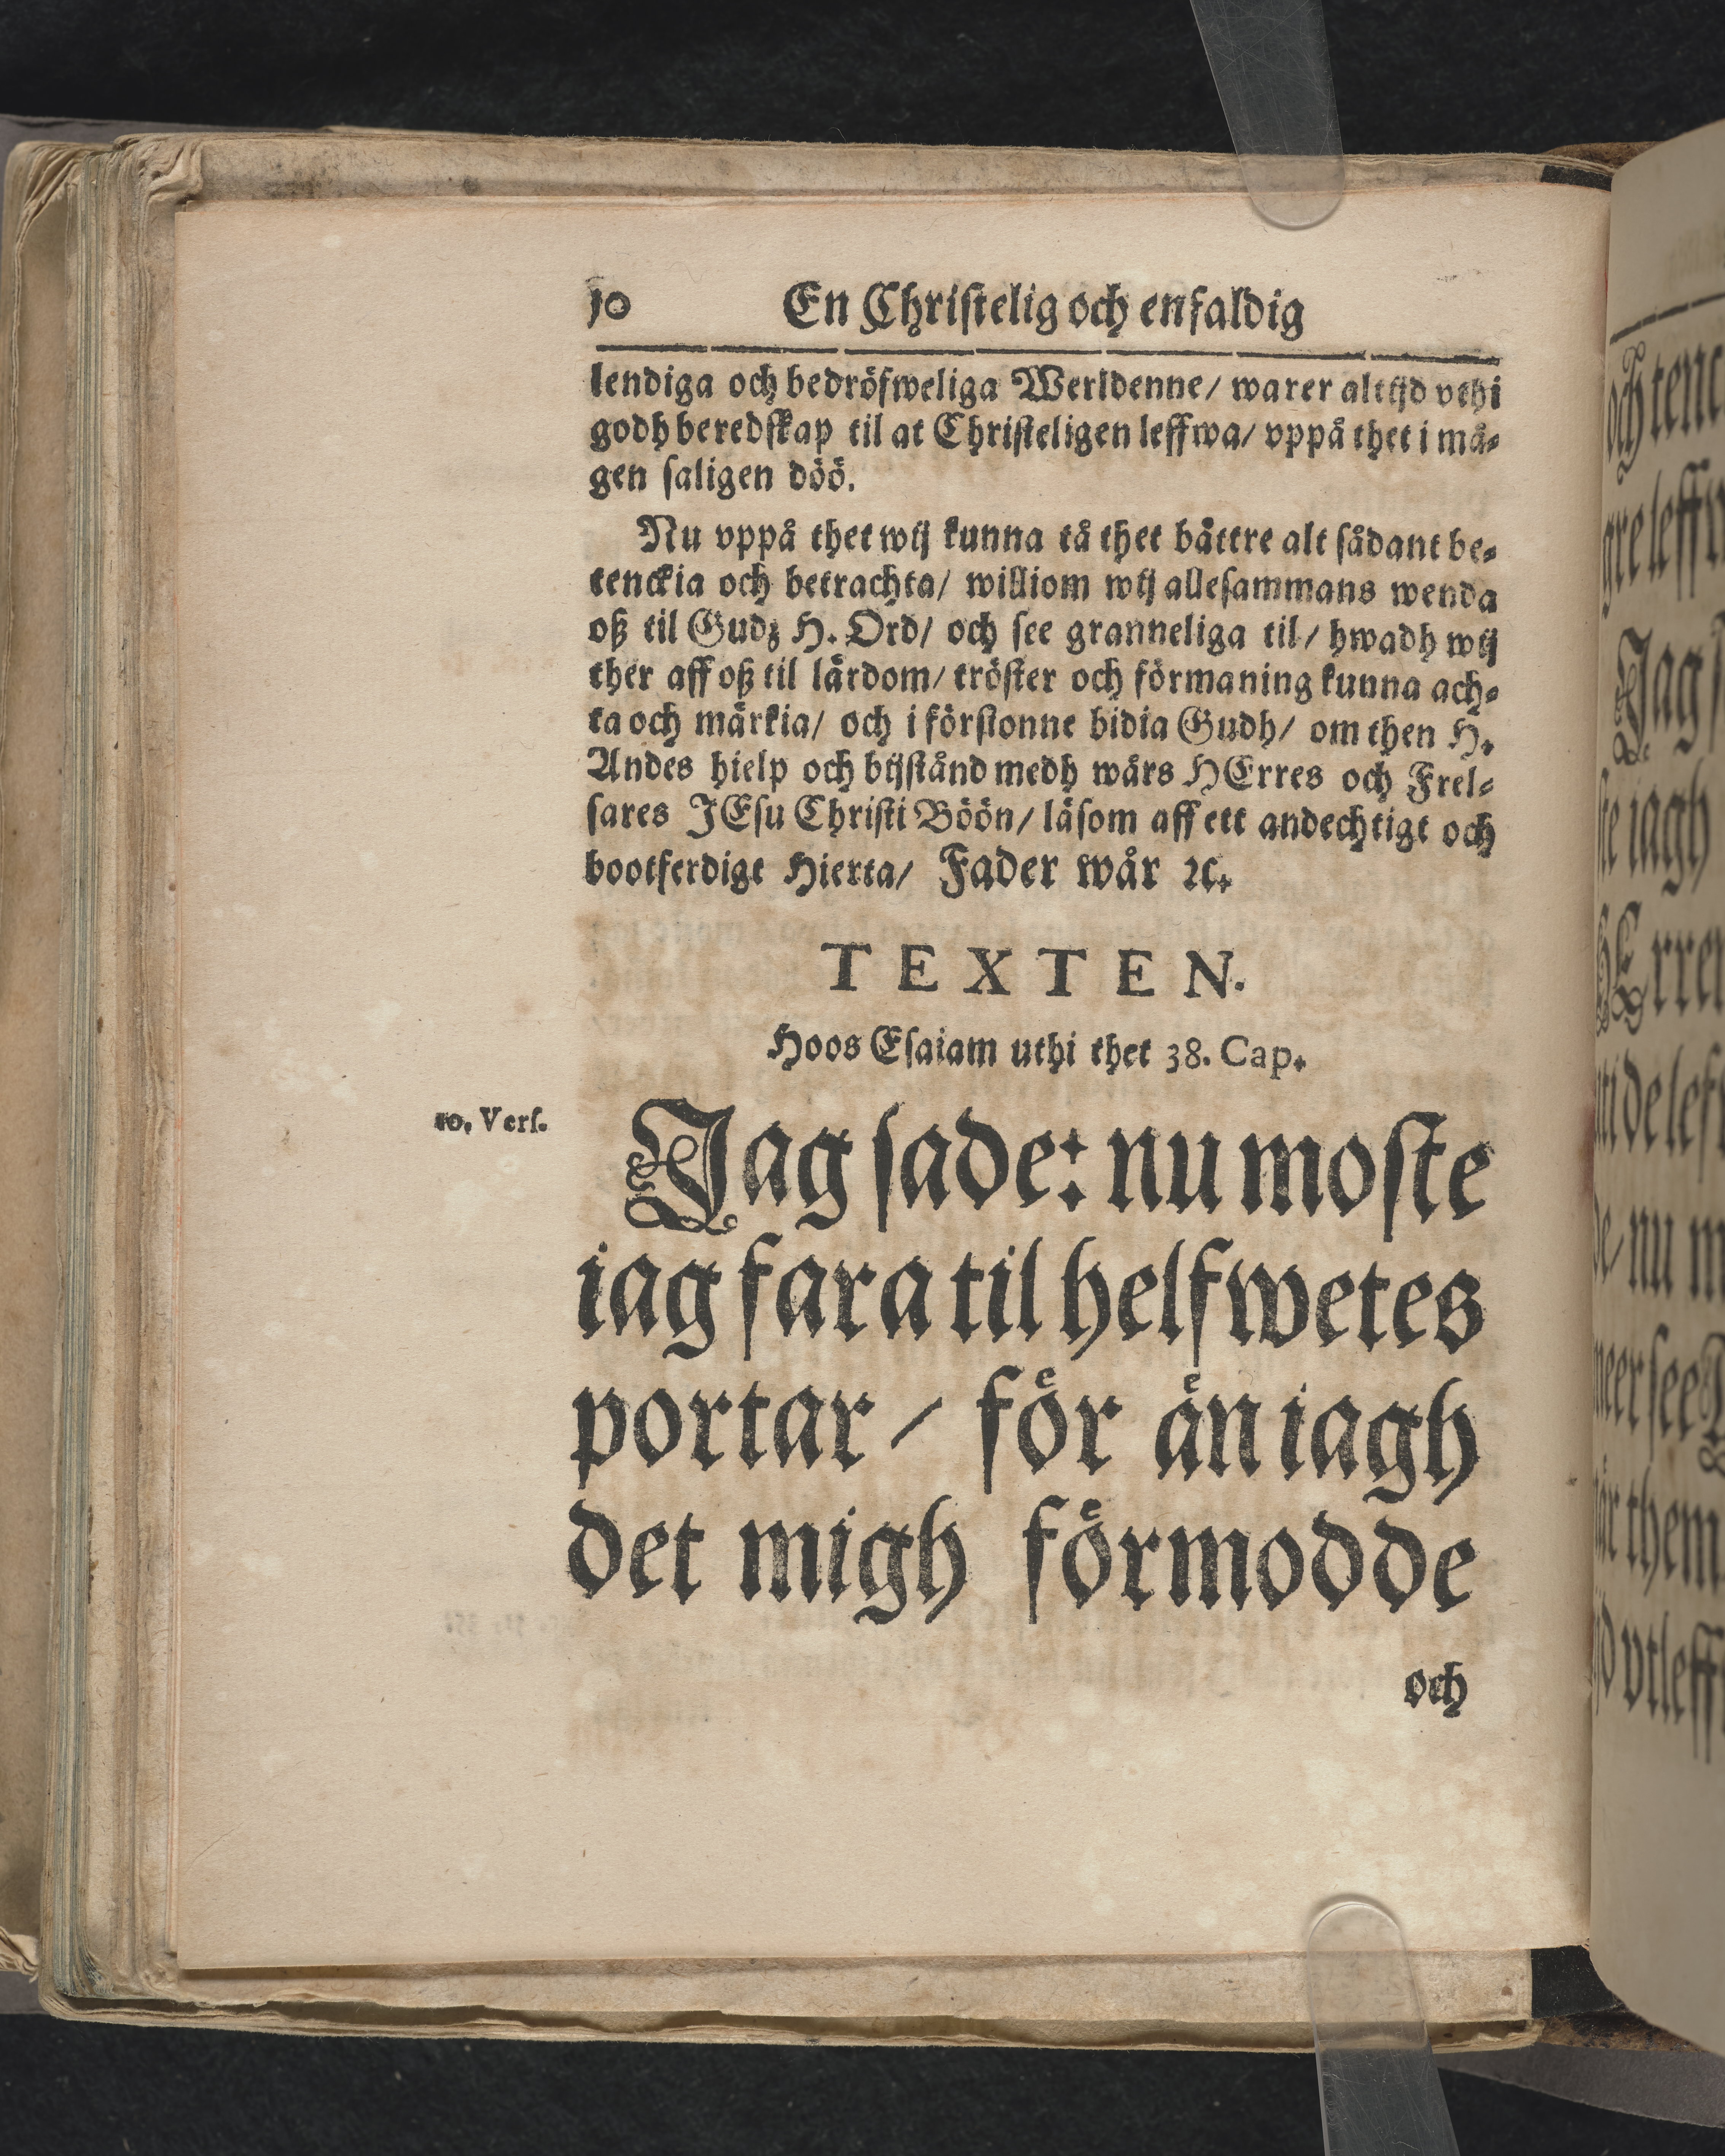 10 En Christelig och enfaldig
lendiga och bedröfweliga Werldenne/ warer altijd vthi
godh beredskap til at Christeligen leffwa/ vppå thet i må-
gen saligen döö.
Nu vppå thet wij kunna tå thet bättre alt sådant be-
tenckia och betrachta/ williom wij allesammans wenda
oß til Gudz H. Ord/ och see granneliga til/ hwadh wij
ther aff oß til lärdom/ tröster och förmaning kunna ach-
ta och märkia/ och i förstonne bidia Gudh/ om then H.
Andes hielp och bijstånd medh wårs HErres och Frel-
sares JEsu Christi Böön/ läsom aff ett andechtigt och
bootferdigt Hierta/ Fader wår ꝛc.
TEXTEN.
Hoos Esaiam uthi thet 38. Cap.
10. Vers.
Jag sade: nu moste
iag fara til helfwetes
portar/ för än iagh
det migh förmodde
och